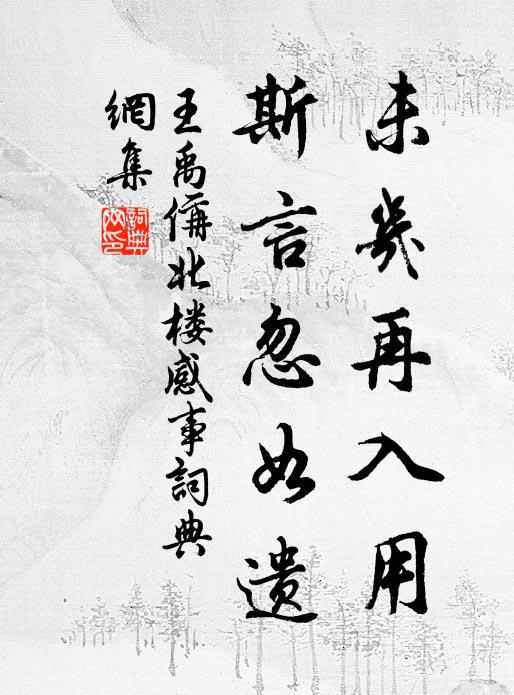 未几再入用
斯言忽如遗
王禹偁北楼感事詞典
網集
詞典網印